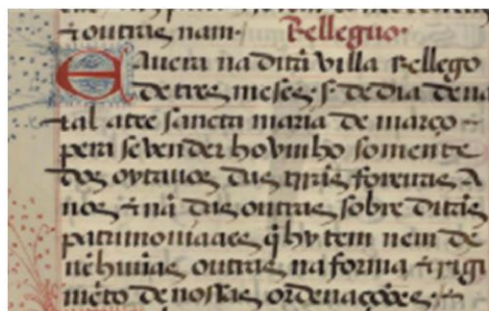 ⁊ outras nam· Relleguo·
E auera na dita villa Rellego
de tres meses·s· de dia de na
tal atee sancta maria de março ⁊
pera se vender ho vinho somente
dos oytauos das terras foreiras A
nos ⁊ nã das outras sobre ditas
patrimoniaaes q̃ hy tem nem de
nẽhuũas outras na forma ⁊ rigi
mẽto de nossas ordenaçoões ⁊